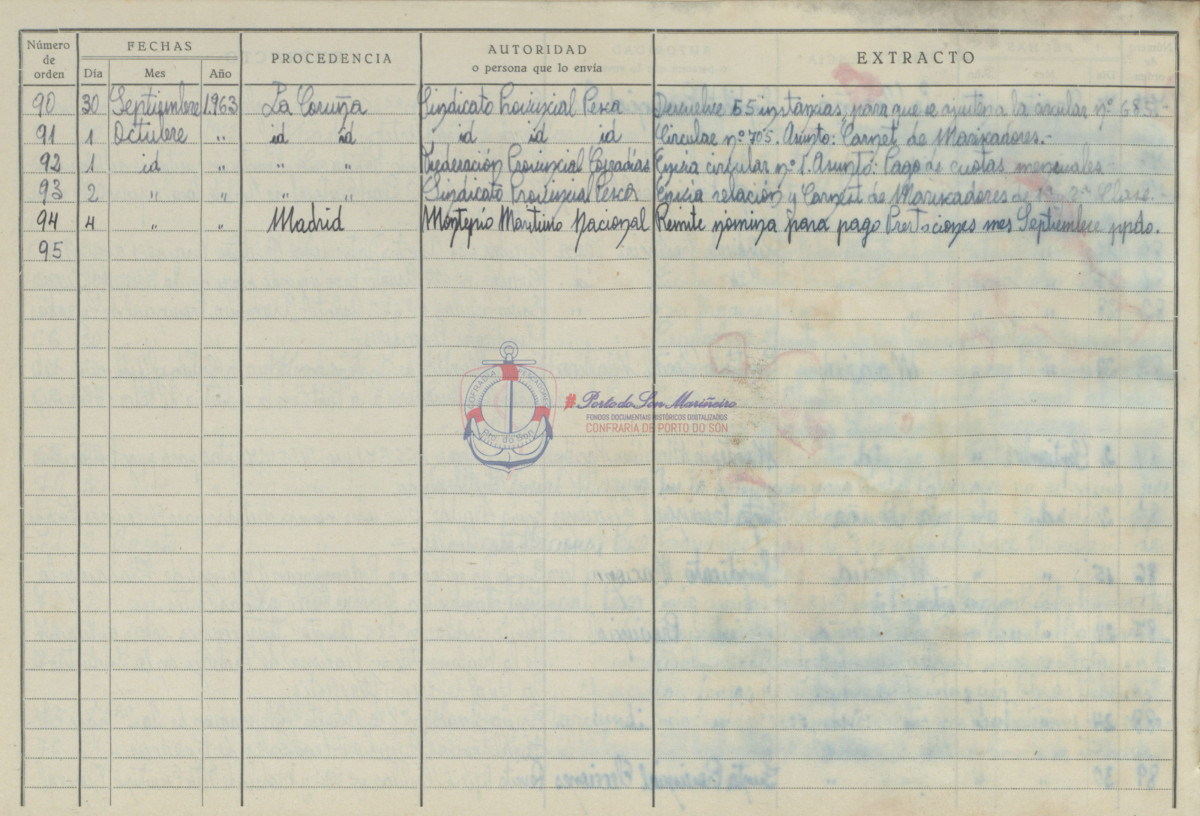 Número de orden FECHAS PROCEDENCIA AUTORIDAD o persona que lo envía EXTRACTO
Día Mes Año
90 30 Septiembre 1.963 La Coruña Sindicato Provincial Pesca Devuelve 55 instancias, para que se ajusten a la circular nº 685.-
91 1 Octubre " id id id id id Circular nº 705. Asunto: Carnet de Mariscadores.-
92 1 id " " " Federación Provincial Cofradías Envia circular nº 1. Asunto: Pago de cuotas mensuales-
93 2 " " " " Sindicato Provincial Pesca Envia relación y Carnet de Mariscadores de 1ª y 2ª Clase.-
94 4 " " Madrid Montepío Marítimo Nacional Remite nómina para pago Prestaciones mes Septiembre ppdo.
95
COFRADIA PESCADORES
Pto. do Son
# Porto do Son Mariñeiro
FONDOS DOCUMENTAIS HISTÓRICOS DIGITALIZADOS
CONFRARÍA DE PORTO DO SON